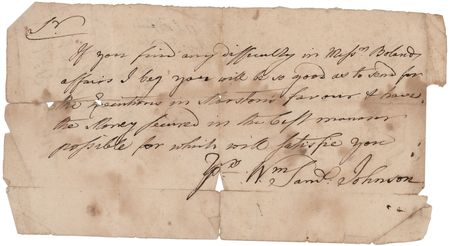 Sr.
If you find any difficulty in Messrs. Bolands
affairs I beg you will be so good as to send for
the Executions in favour & have
the Money secured in the best manner
possible for which will satisfie you
Yrs. Wm Saml. Johnson